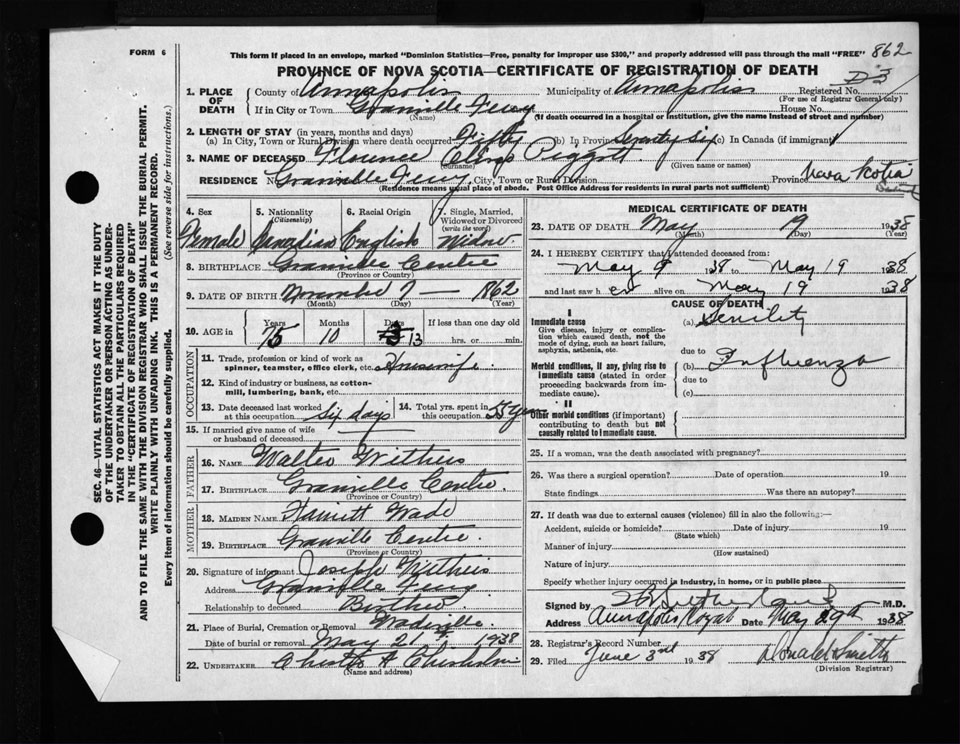 FORM 6
This form if placed in an envelope, marked "Dominion Statistics—Free, penalty for improper use $300," and properly addressed will pass through the mail "FREE" 862
PROVINCE OF NOVA SCOTIA—CERTIFICATE OF REGISTRATION OF DEATH D3
1. PLACE OF DEATH County of Annapolis Municipality of Annapolis Registered No.
(For use of Registrar General only)
If in City or Town Granville Ferry House No.
(Name) (If death occurred in a hospital or institution, give the name instead of street and number)
2. LENGTH OF STAY (in years, months and days)
(a) In City, Town or Rural Division where death occurred Fifty (b) In Province Seventy Six (c) In Canada (if immigrant)
3. NAME OF DECEASED Florence Piggott
(Given name or names)
RESIDENCE No. Granville Ferry City, Town or Rural Division Province Nova Scotia
(Residence means usual place of abode. Post Office Address for residents in rural parts not sufficient)
4. Sex Female
5. Nationality (Citizenship) Canadian
6. Racial Origin English
7. Single, Married, Widowed or Divorced (write the word) Widow
8. BIRTHPLACE Granville Centre
(Province or Country)
9. DATE OF BIRTH November 7 — 1862
(Month) (Day) (Year)
10. AGE in Years 75 Months 10 Days 13 If less than one day old hrs. or min.
OCCUPATION
11. Trade, profession or kind of work as spinner, teamster, office clerk, etc. Housewife
12. Kind of industry or business, as cotton-mill, lumbering, bank, etc.
13. Date deceased last worked at this occupation Six days
14. Total yrs. spent in this occupation 55 years
15. If married give name of wife or husband of deceased
FATHER
16. NAME Walter Withers
17. BIRTHPLACE Granville Centre
(Province or Country)
MOTHER
18. MAIDEN NAME Harriett Wade
19. BIRTHPLACE Granville Centre
(Province or Country)
20. Signature of informant Joseph Withers
Address Granville Ferry
Relationship to deceased Brother
21. Place of Burial, Cremation or Removal Wadeville
Date of burial or removal May 21 1938
22. UNDERTAKER A Chisholm
(Name and address)
MEDICAL CERTIFICATE OF DEATH
23. DATE OF DEATH May 19 1938
(Month) (Day) (Year)
24. I HEREBY CERTIFY that I attended deceased from:
May 9 1938 to May 19 1938
and last saw her alive on May 19 1938
CAUSE OF DEATH
I
Immediate cause
Give disease, injury or complication which caused death, not the mode of dying, such as heart failure, asphyxia, asthenia, etc.
(a) Senility
due to
Morbid conditions, if any, giving rise to immediate cause (stated in order proceeding backwards from immediate cause).
(b) Influenza
due to
(c)
II
Other morbid conditions (if important) contributing to death but not causally related to immediate cause.
25. If a woman, was the death associated with pregnancy?
26. Was there a surgical operation? Date of operation 19
State findings Was there an autopsy?
27. If death was due to external causes (violence) fill in also the following:—
Accident, suicide or homicide? Date of injury 19
(State which)
Manner of injury
(How sustained)
Nature of injury
Specify whether injury occurred in industry, in home, or in public place
Signed by M.D.
Address Annapolis Royal Date May 29th 1938
28. Registrar's Record Number
29. Filed June 3rd 1938 Donald Smith
(Division Registrar)
SEC. 46—VITAL STATISTICS ACT MAKES IT THE DUTY
OF THE UNDERTAKER OR PERSON ACTING AS UNDER-
TAKER TO OBTAIN ALL THE PARTICULARS REQUIRED
IN THE "CERTIFICATE OF REGISTRATION OF DEATH"
AND TO FILE THE SAME WITH THE DIVISION REGISTRAR WHO SHALL ISSUE THE BURIAL PERMIT.
WRITE PLAINLY WITH UNFADING INK. THIS IS A PERMANENT RECORD.
Every item of information should be carefully supplied. (See reverse side for instructions.)